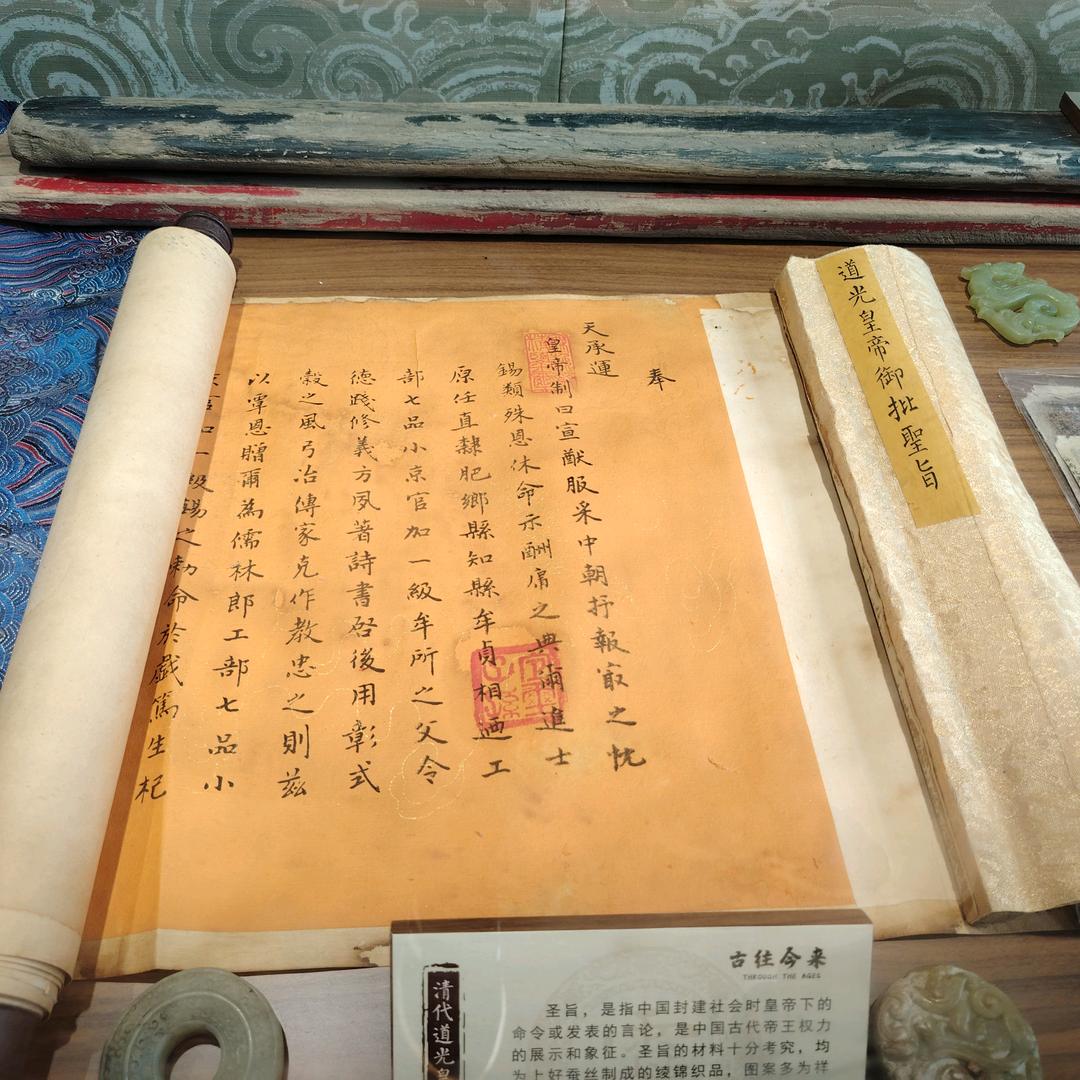 道光皇帝御批聖旨
奉
天承運
皇帝制曰宣猷服采中朝抒報㝡之忱
錫類殊恩休命示酬庸之典爾進士
原任直隸肥鄉縣知縣牟貞相迺工
部七品小京官加一級牟所之父令
德踐修義方夙著詩書啓後用彰式
穀之風弓冶傳家克作教忠之則茲
以覃恩贈爾為儒林郎工部七品小
京官加一級錫之勅命於戲篤生杞
古往今来
THROUGH THE AGES
清代道光皇
圣旨，是指中国封建社会时皇帝下的
命令或发表的言论，是中国古代帝王权力
的展示和象征。圣旨的材料十分考究，均
为上好蚕丝制成的绫锦织品，图案多为祥